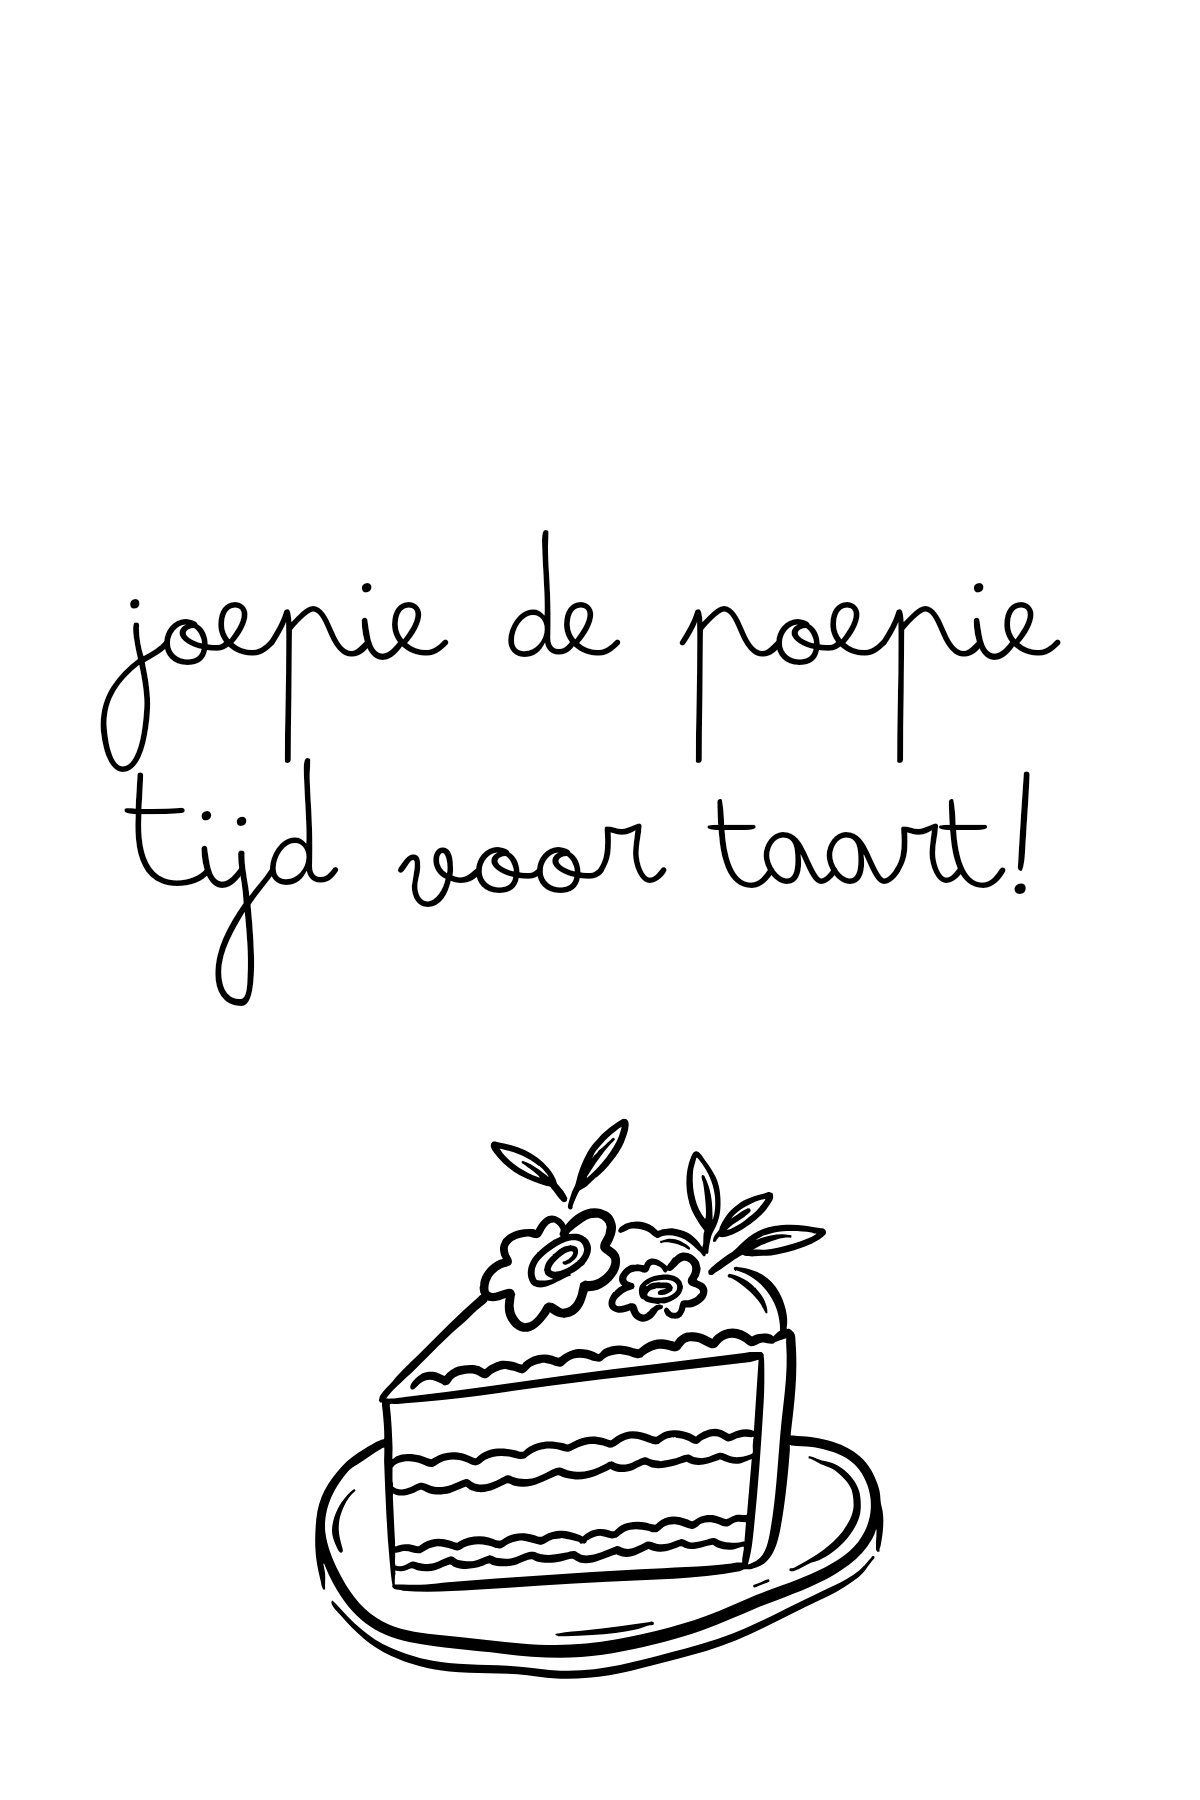 joepie de poepie
tijd voor taart!